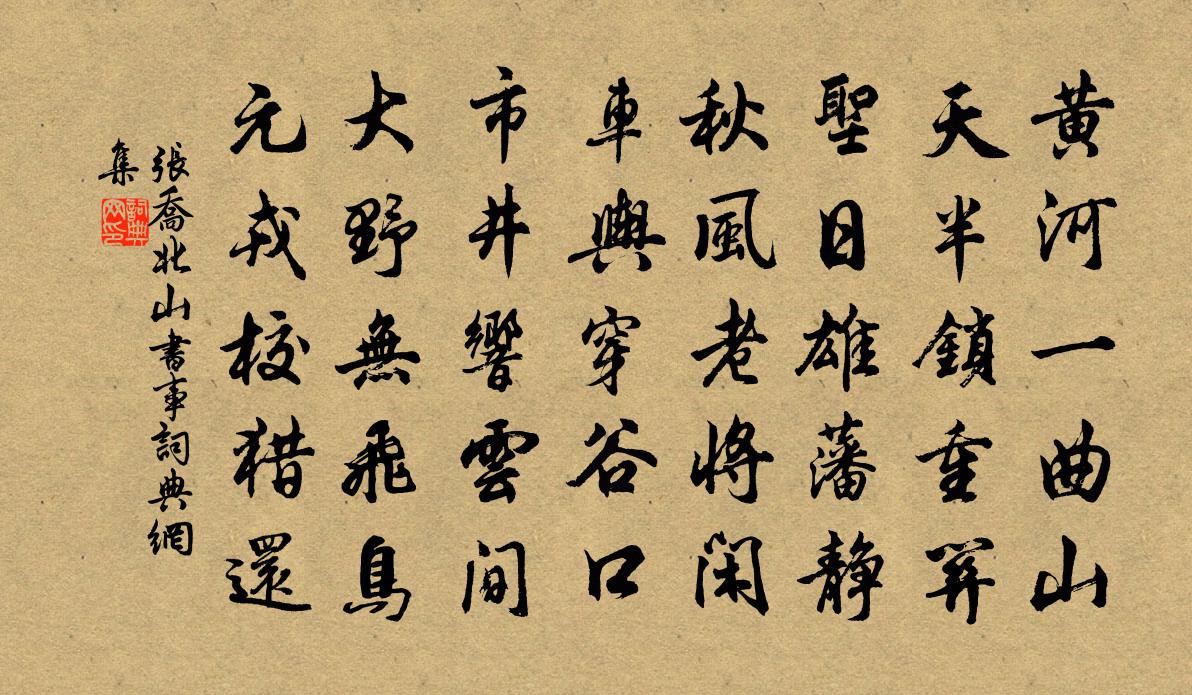 黃河一曲山
天半鎖重關
聖日雄藩靜
秋風老將閑
車輿穿谷口
市井響雲間
大野無飛鳥
元戎校獵還
張喬北山書事詞典網
集
詞典
网印